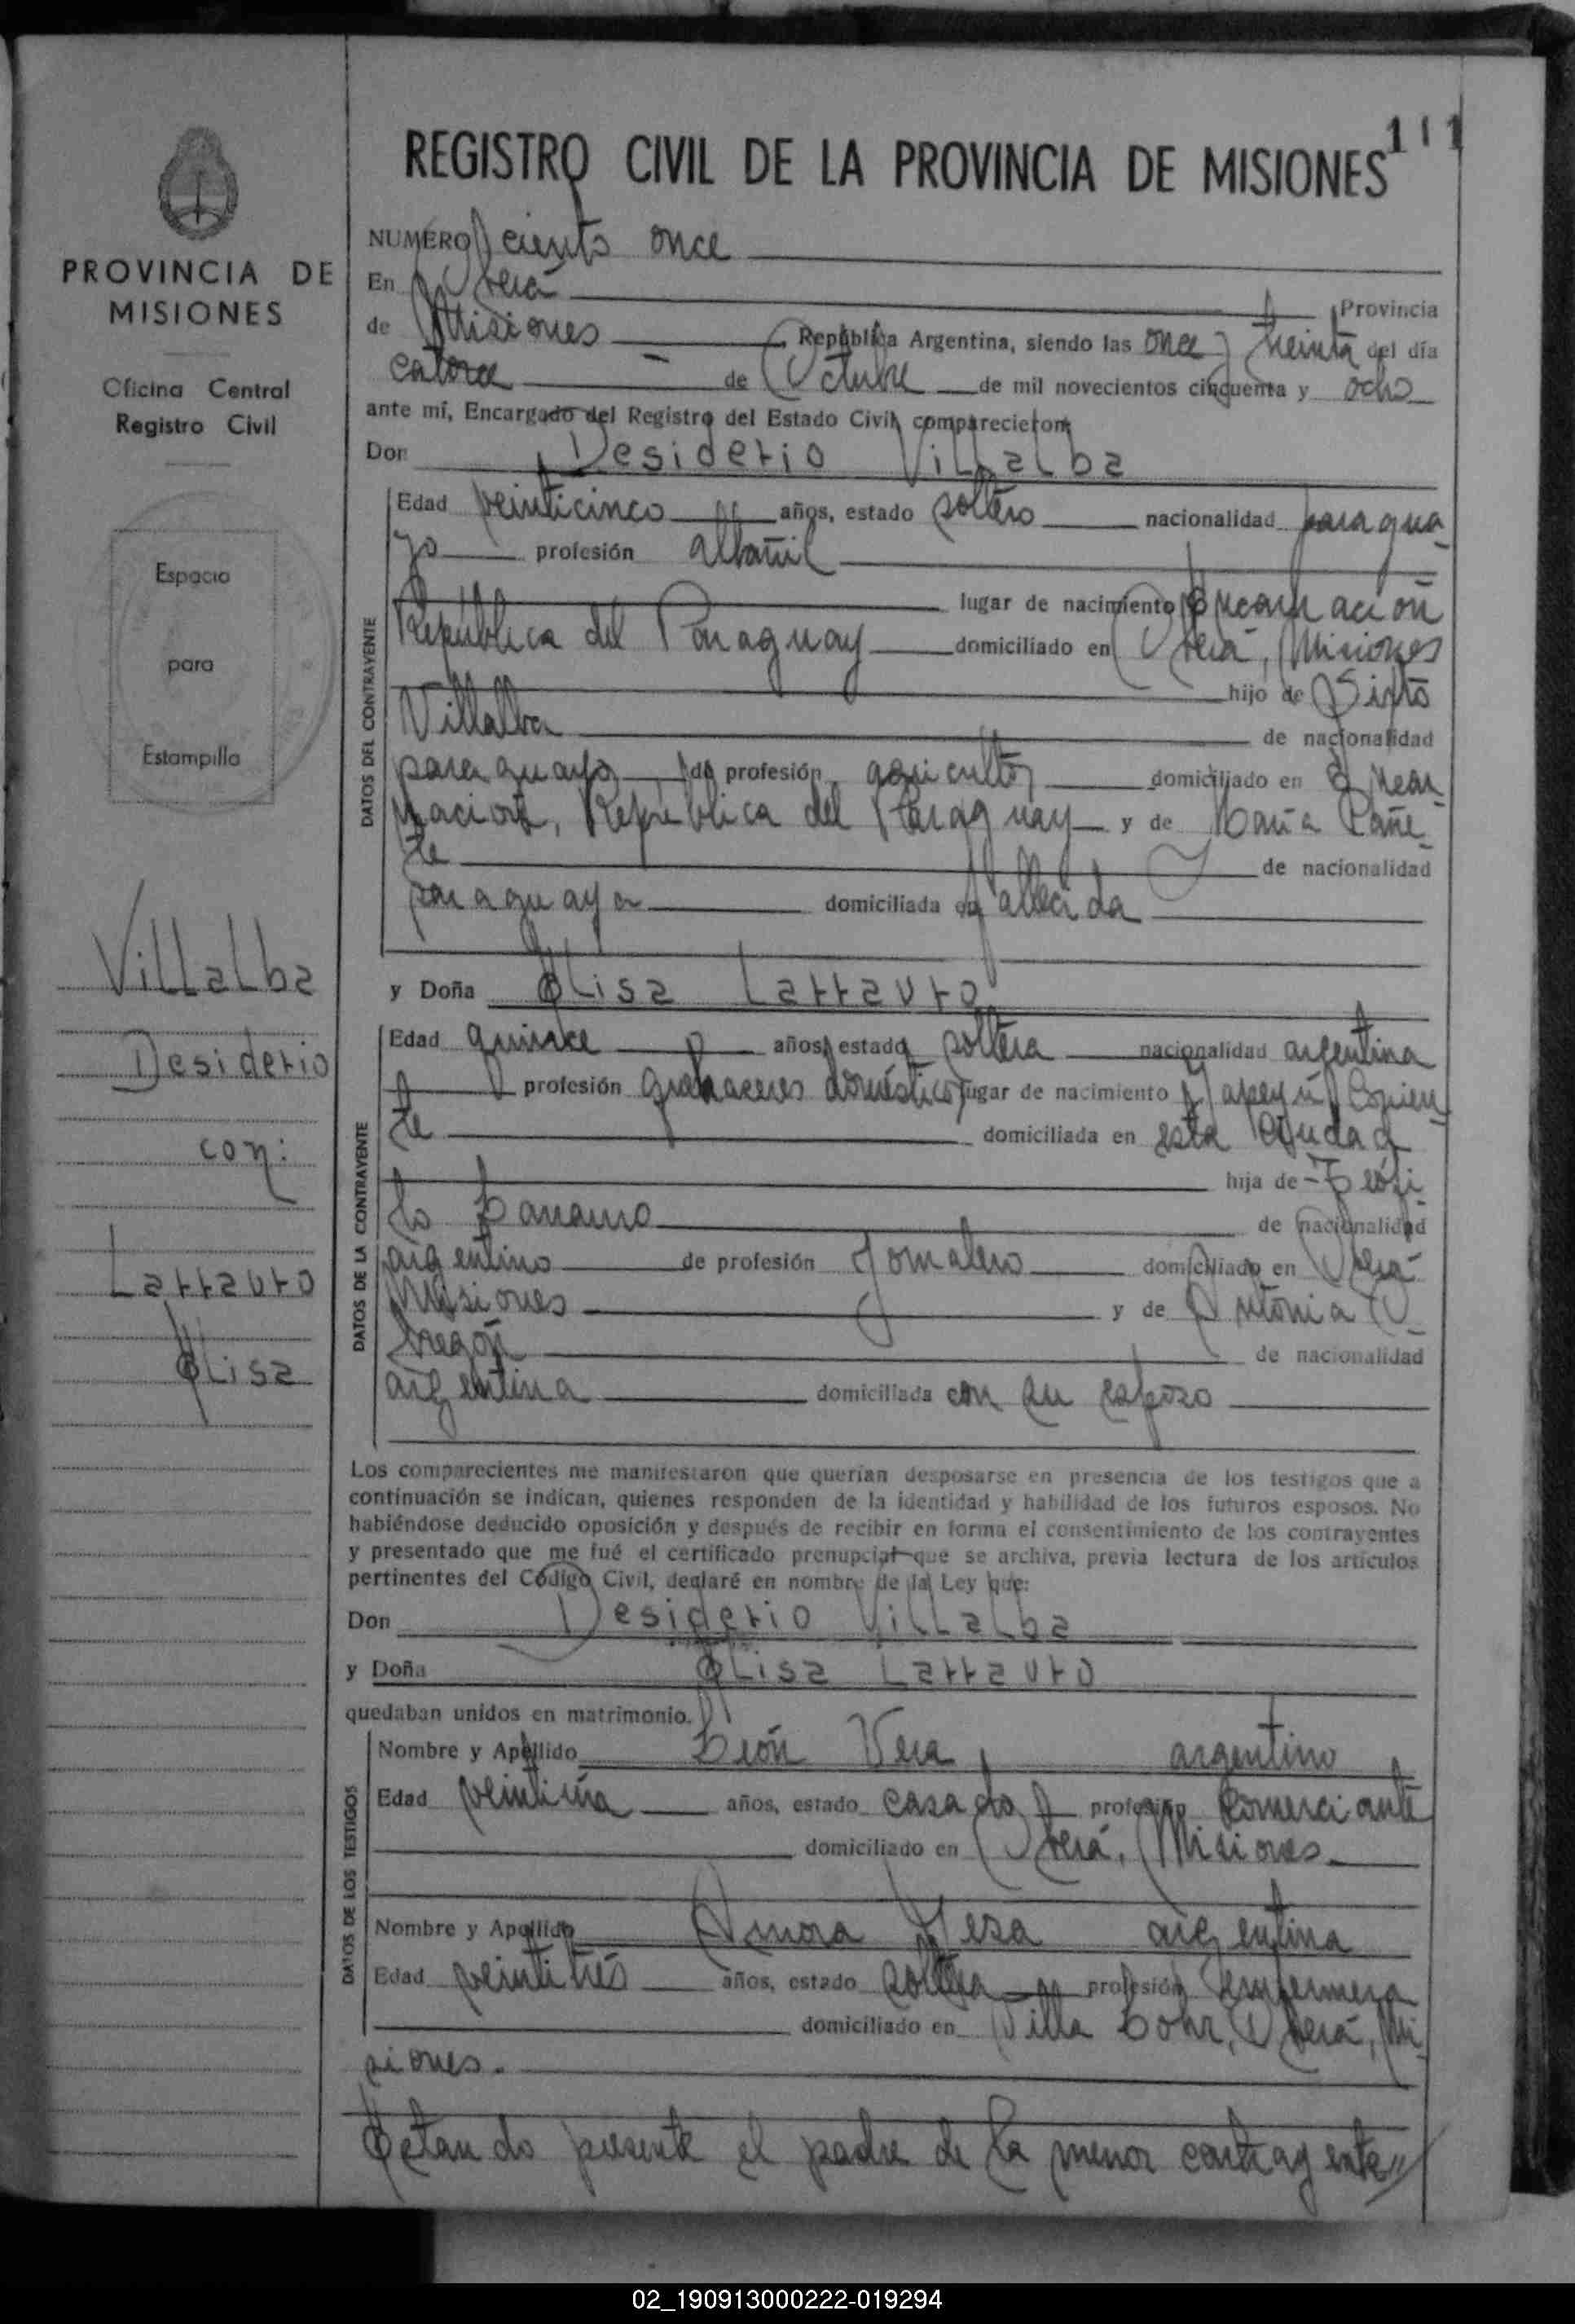 111
REGISTRO CIVIL DE LA PROVINCIA DE MISIONES
PROVINCIA DE
MISIONES
Oficina Central
Registro Civil
Espacio
para
Estampilla
Villalba
Desiderio
con:
Larrauro
Elisa
NUMERO ciento once
En Oberá Provincia
de Misiones República Argentina, siendo las once y treinta del día
catorce de Octubre de mil novecientos cincuenta y ocho
ante mí, Encargado del Registro del Estado Civil, comparecieron:
Don Desiderio Villalba
DATOS DEL CONTRAYENTE
Edad veinticinco años, estado soltero nacionalidad paragua
yo profesión albañil
lugar de nacimiento Encarnación
República del Paraguay domiciliado en Oberá, Misiones
hijo de Sixto
Villalba de nacionalidad
paraguayo de profesión agricultor domiciliado en Encar
nación, República del Paraguay y de María Cañe
te de nacionalidad
paraguaya domiciliada en fallecida
y Doña Elisa Larrauro
DATOS DE LA CONTRAYENTE
Edad quince años, estado soltera nacionalidad argentina
profesión quehaceres domésticos lugar de nacimiento Yapeyú, Corrien
te domiciliada en esta ciudad
hija de Teófi
lo Larrauro de nacionalidad
argentino de profesión Jornalero domiciliado en Oberá
Misiones y de Antonia O
bregón de nacionalidad
argentina domiciliada con su esposo
Los comparecientes me manifestaron que querían desposarse en presencia de los testigos que a
continuación se indican, quienes responden de la identidad y habilidad de los futuros esposos. No
habiéndose deducido oposición y después de recibir en forma el consentimiento de los contrayentes
y presentado que me fué el certificado prenupcial que se archiva, previa lectura de los artículos
pertinentes del Código Civil, declaré en nombre de la Ley que:
Don Desiderio Villalba
y Doña Elisa Larrauro
quedaban unidos en matrimonio.
DATOS DE LOS TESTIGOS
Nombre y Apellido León Vera argentino
Edad veintiún años, estado casado profesión Comerciante
domiciliado en Oberá, Misiones
Nombre y Apellido Amora Meza argentina
Edad veintitrés años, estado soltera profesión enfermera
domiciliado en Villa Lohr, Oberá, Mi
siones.
Estando presente el padre de la menor contrayente//
02_190913000222-019294